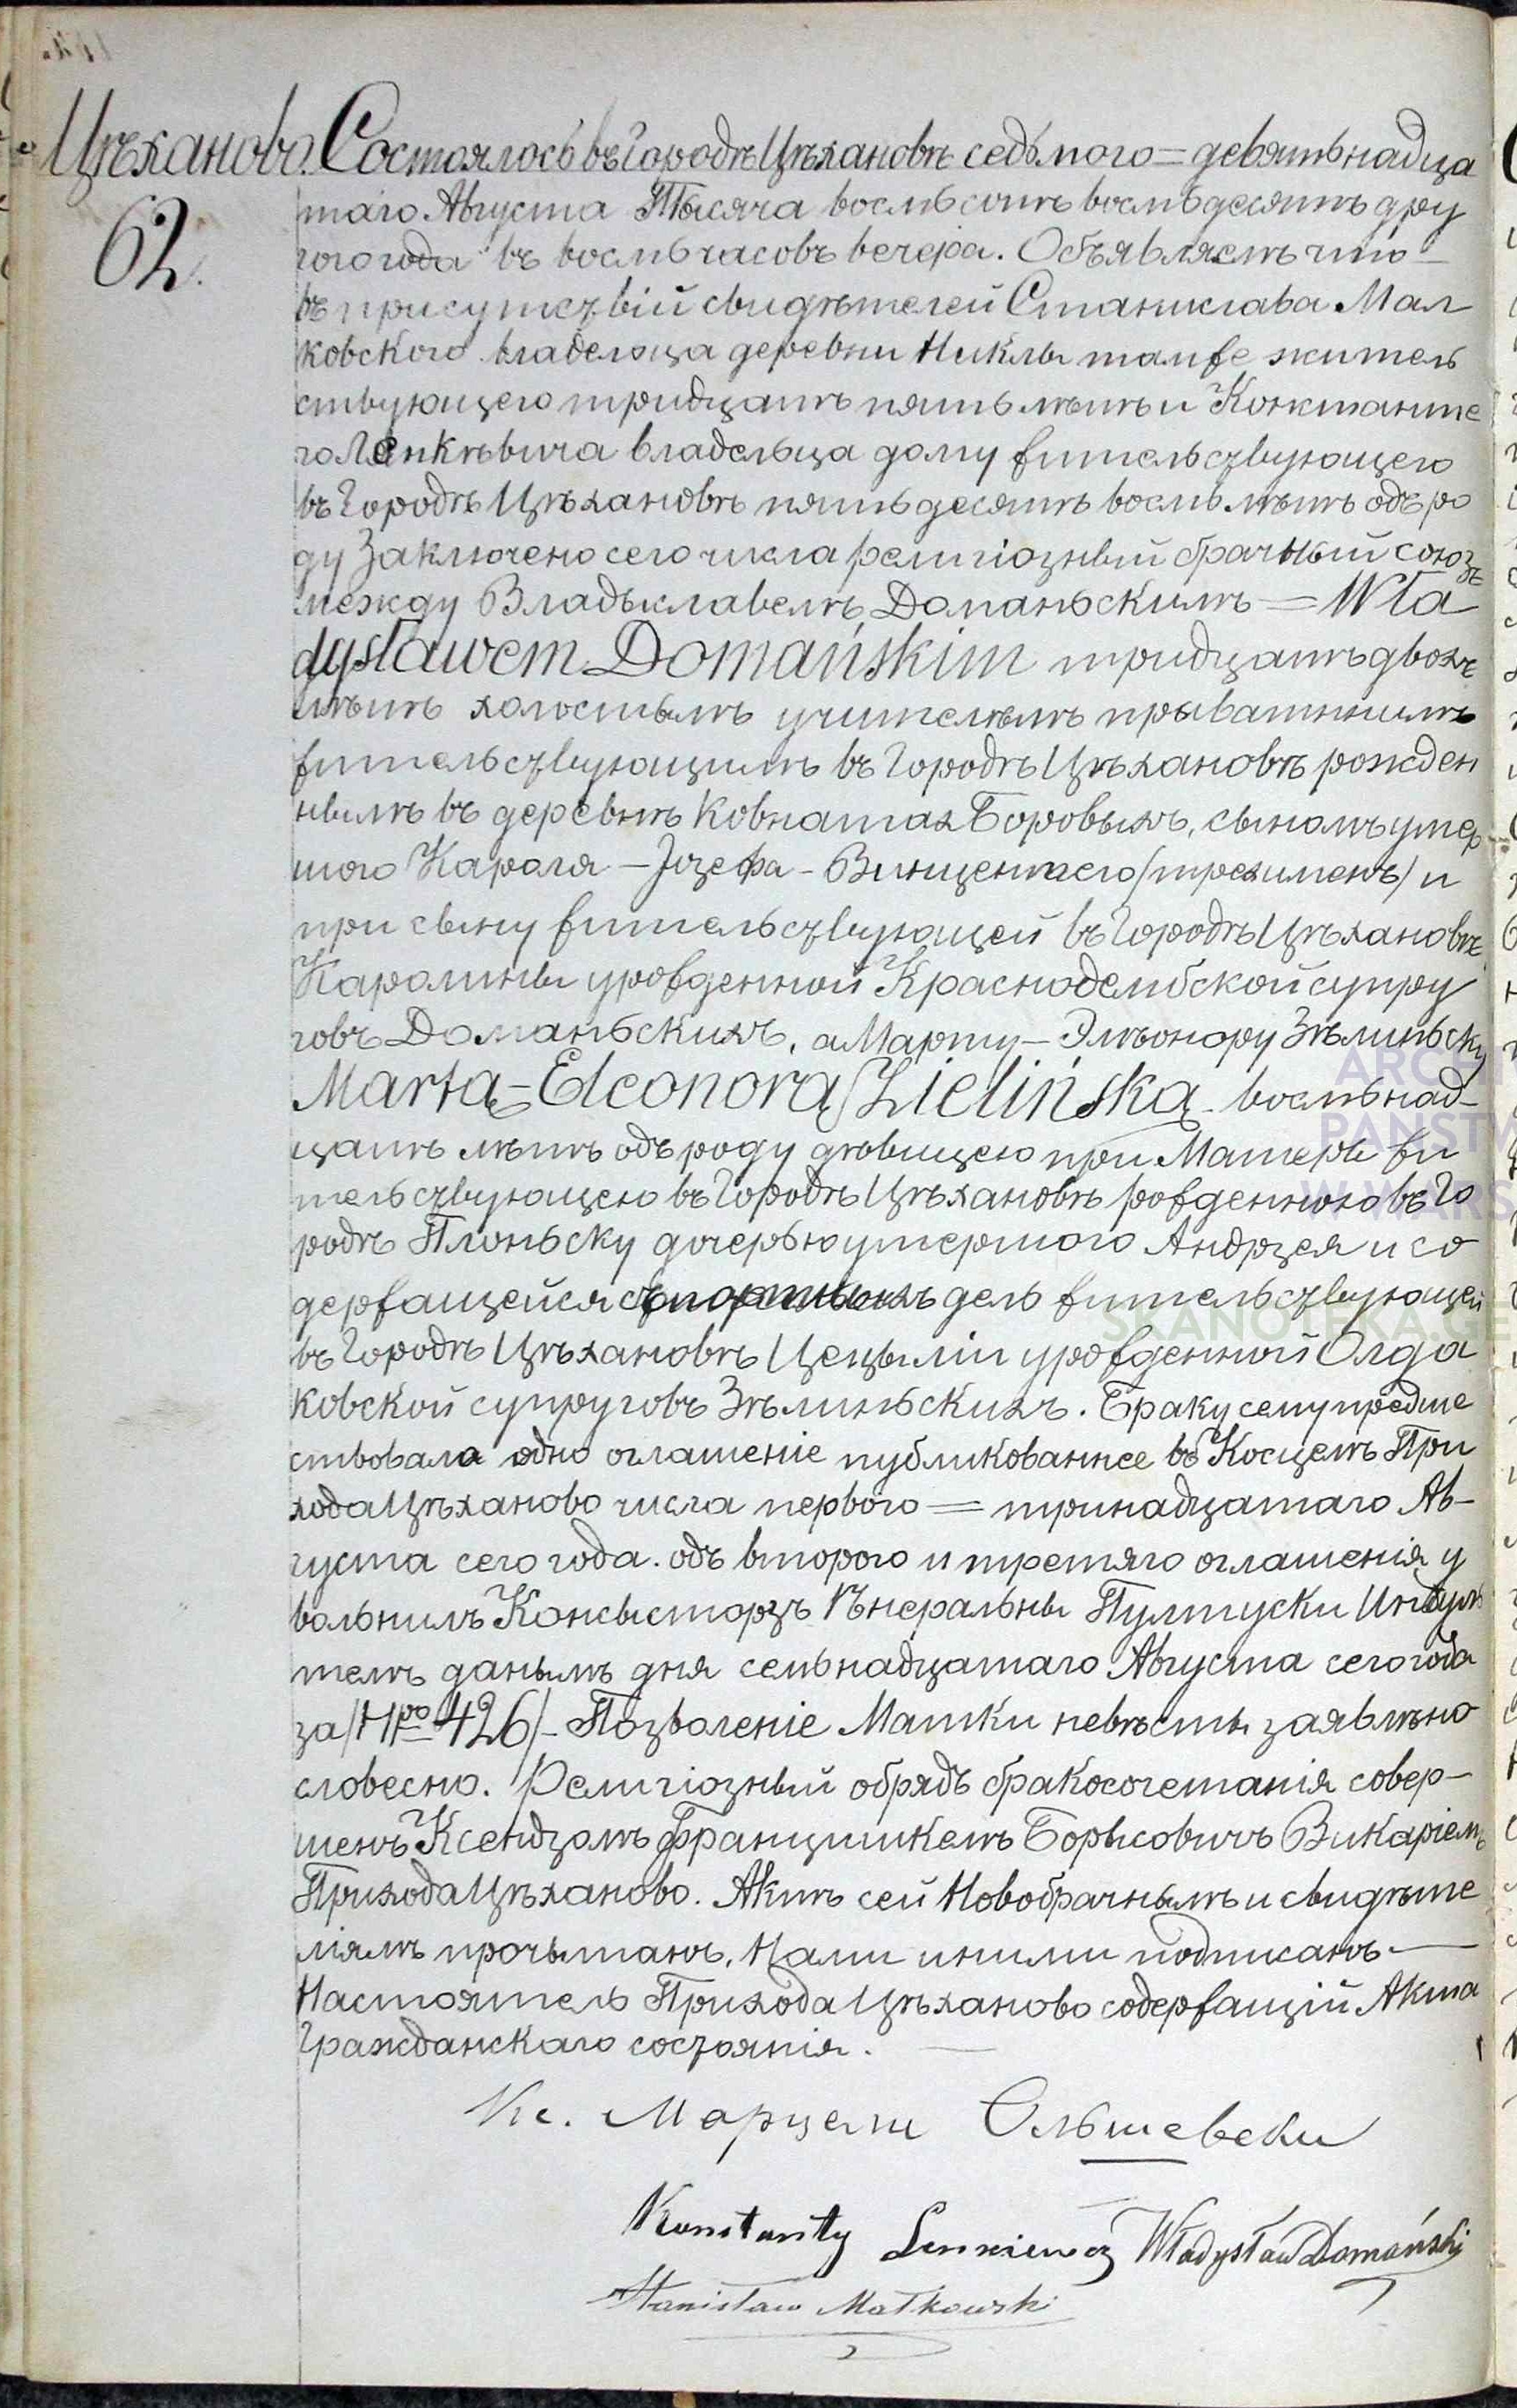 Цѣханово. Состоялось въ Городѣ Цѣхановѣ седьмого = девятьнадца
62.
таго Августа Тысяча восмьсотъ восмьдесятъ дру
гого года въ восмь часовъ вечера. Объявляемъ что
въ присутствій свидѣтелей Станислава Мал
ковского владельца деревни Никлы тамже житель
ствующего тридцатъ пять лѣтъ и Константе
го Ленкѣвича владельца дому жительствующего
въ Городѣ Цѣхановѣ пятьдесятъ восмь лѣтъ одъ ро
ду Заключено сего числа религіозный брачный союзъ
между Владыславемъ Доманьскимъ = Wła
dysławem Domańskim тридцатъ двохъ
лѣтъ холостымъ учителѣмъ прыватнимъ
жительствующимъ въ Городѣ Цѣхановѣ рожден
нымъ въ деревнѣ Ковнатах Боровыхъ, сыномъ умер
шого Кароля - Јозефа - Винцентего /трехименъ/ и
при сыну жительствующей въ Городѣ Цѣхановѣ
Каролины урожденной Краснодембской супру
говъ Доманьскихъ, а Марту - Элѣонору Зѣлиньску
Martą = Eleonorą Zielińską восмьнад-
цатъ лѣтъ одъ роду дѣвицею при Матеры жи
тельствующею въ Городѣ Цѣхановѣ рожденною въ Го
родѣ Плоньску дочерью умершого Андрзея и со
держащейся съ дель жительствующей
въ Городѣ Цѣхановѣ Цецыліи урожденной Олда
ковской супруговъ Зѣлиньскихъ. Браку сему предше
ствовало одно оглашеніе публикованнее въ Косцелѣ При
хода Цѣханово числа первого = тринадцатаго Ав-
густа сего года. одъ второго и третяго оглашенія у
вольнилъ Консысторзъ Гѣнеральны Пултуски Индуль
темъ данымъ дня семьнадцатаго Августа сего года
за /Нро 426/ - Позволеніе Матки невѣсты заявлѣно
словесно. Религіозный обрядъ бракосочетанія совер-
шенъ Ксендзомъ Францишкемъ Борысовичъ Викаріемъ
Прихода Цѣханово. Актъ сей Новобрачнымъ и свидѣте
лямъ прочытанъ, Нами и ними подписанъ —
Настоятель Прихода Цѣханово содержащій Акта
Гражданскаго состоянія. —
Кс. Марцели Ольшевски
Konstanty Lenkiewicz Władysław Domański
Stanisław Małkowski
ARCHIW
PAŃSTW
W WARS
SKANOTEKA.GE